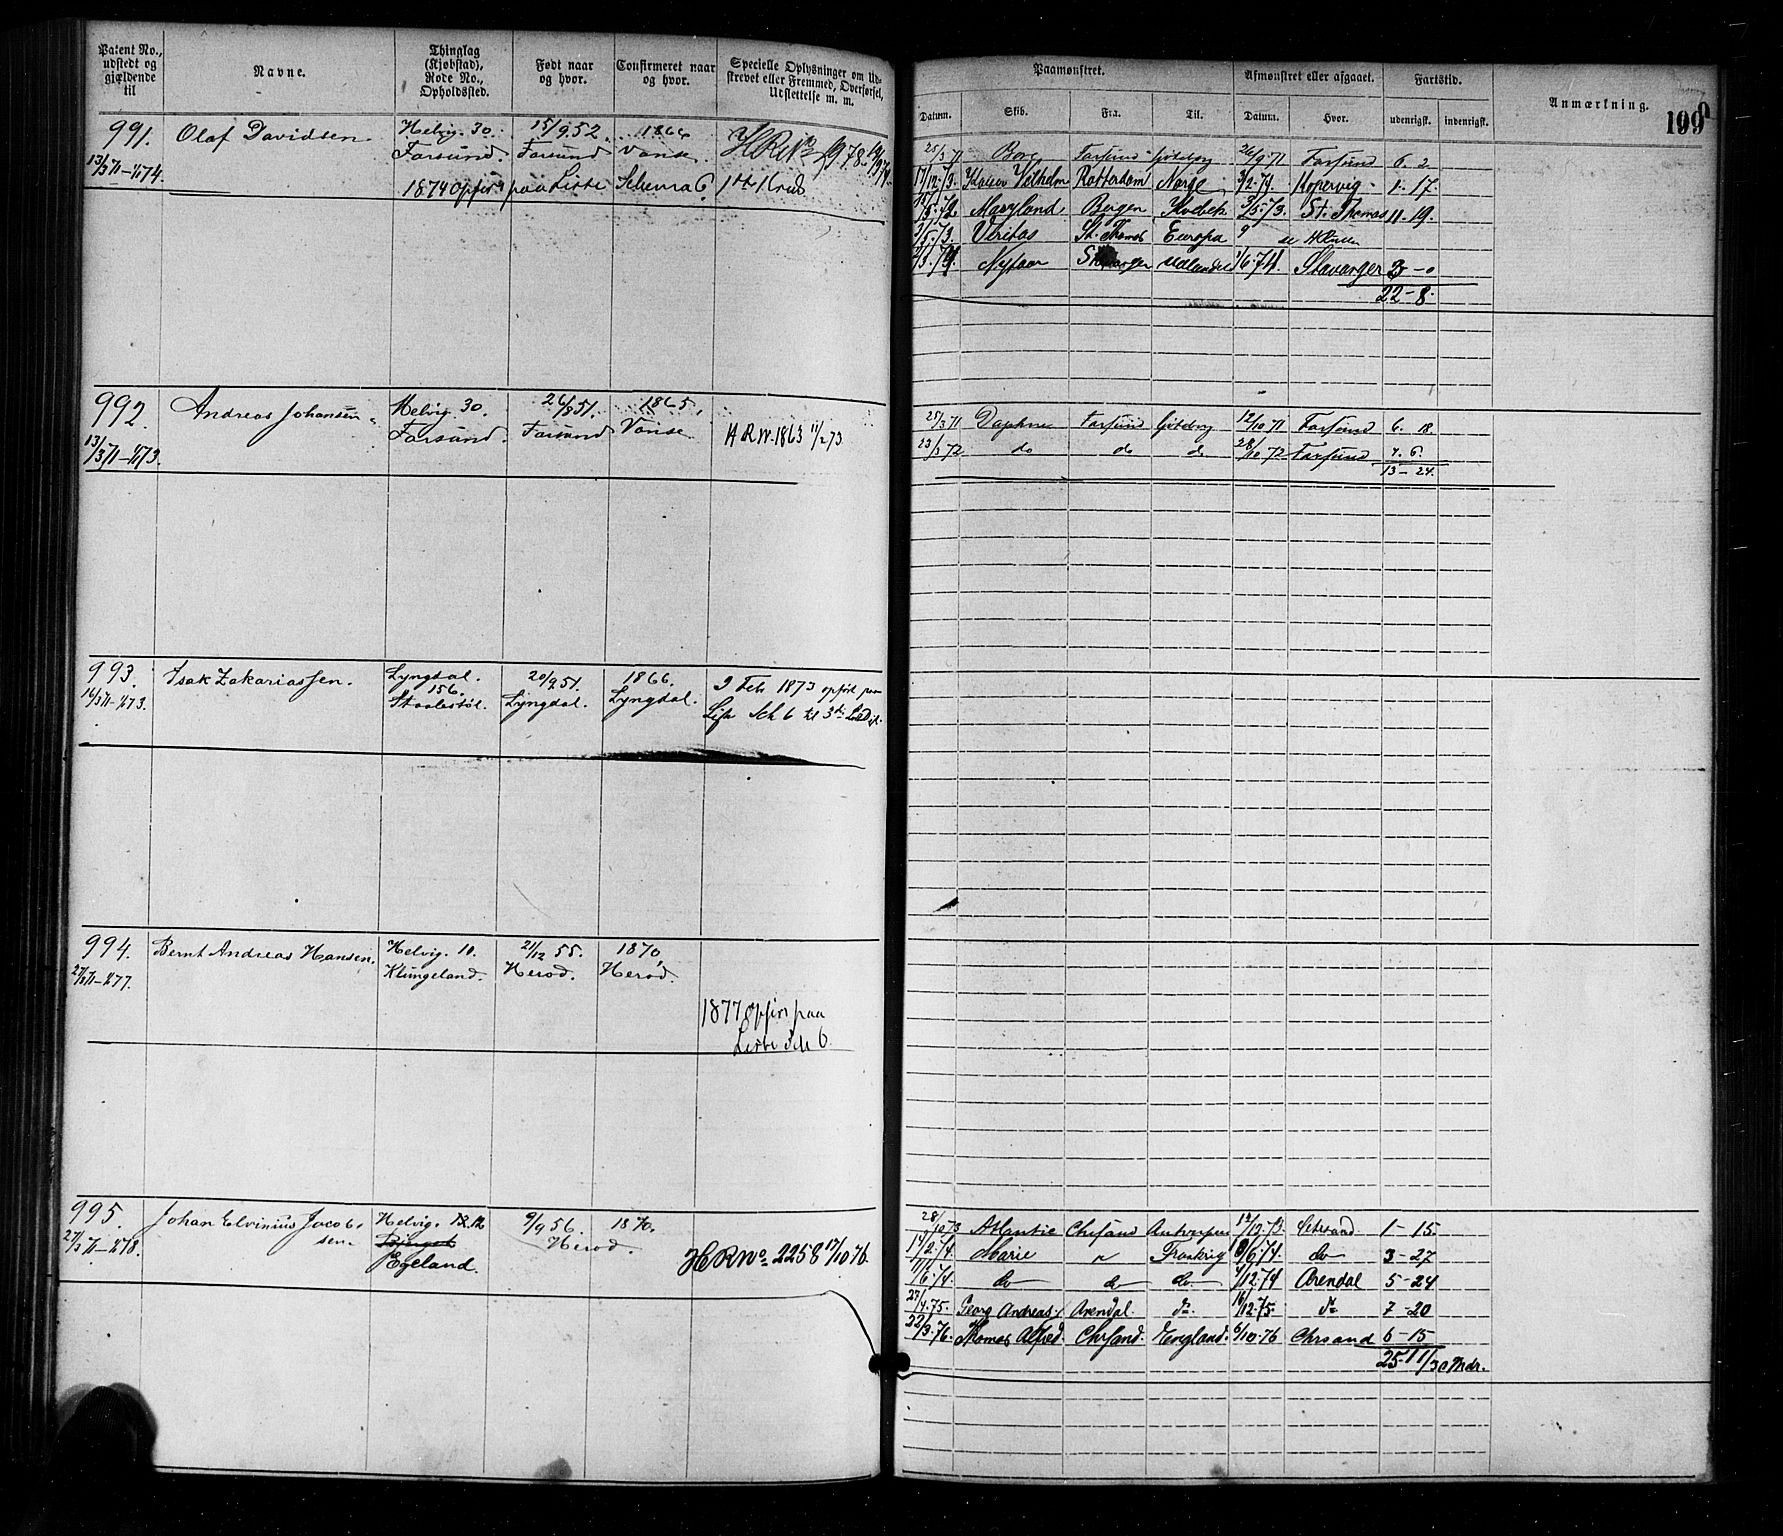 Patent No., udstedt og gjældende til
Navne.
Thinglag (Kjøbstad), Rode No., Opholdssted.
Født naar og hvor.
Confirmeret naar og hvor.
Specielle Oplysninger om Udskrevet eller Fremmed, Overførsel, Udslettelse m. m.
Paamønstret.
Afmønstret eller afgaaet.
Fartstid.
Anmærkning.
199
Datum.
Skib.
Fra.
Til.
Datum.
Hvor.
udenrigsk.
indenrigsk.
991.
13/3 71 - 1/1 74.
Olaf Davidsen
Helvig. 30.
Farsund.
15/9. 52.
Farsund
Vanse.
1874 opført paa Liste Schema 6
25/3 71 Farsund 26/9 71 Farsund 6. 2
17/12. 73. Vilhelm Rotterdam Norge 3/2. 74. Kopervig. 1. 17.
Maryland Bergen 3/5. 73. St. Thomas 11. 19.
3/5. 73. Veritas St. Thomas Europa
Stavanger Udlandet 1/6. 74. Stavanger 3 - 0
22 - 8.
992.
13/3 71 - 1/1 73.
Andreas Johansen
Helvig 30.
Farsund.
26/8 51.
Farsund
1865.
Vanse
H R No. 1863 11/2 73
25/3 71 Daphne Farsund 12/10 71 Farsund 6. 18.
23/3 72 do do d 28/10 72 Farsund 7. 6.
13 - 24.
993.
16/3 71 - 1/1 73.
Isak Zakariassen.
Lyngdal.
156.
20/9 51.
Lyngdal.
1866.
Lyngdal.
Feb 1873 opført paa
Sch 6 til 3die
994.
27/3 71 - 1/1 77.
Bernt Andreas Hansen.
Helvig. 10.
Klungeland.
21/12 55.
Herod.
1870,
Herod.
1877 opført paa
Liste Sch 6
995.
27/3 71 - 1/1 78.
Johan Elvinius Jacobsen.
Helvig. 12
Egeland.
9/9 56.
1870.
Herod.
H R No. 2258 17/10 76.
28/10 73 Atlantic Chrsand Antwerpen 12/12. 73. Chrsand 1 - 15.
14/2. 74. Marie " 8/6. 74. do 3 - 27
11/6. 74. do do do 4/12. 74 Arendal 5 - 24
27/4. 75. Georg Andreas Arendal. do. 16/12. 75 do 7 - 20
22/3. 76. Thomas Alfred. Chrsand. England. 6/10. 76 Chrsand 6 - 15
25 11/30 Mdr.